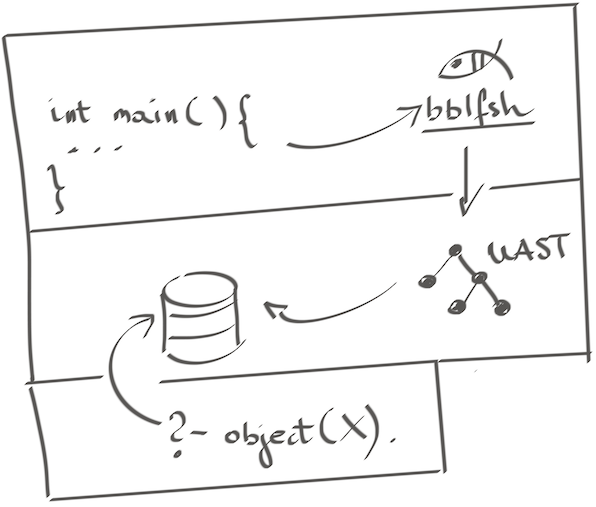 int main(){
...
}
bblfsh
UAST
?- object(X).